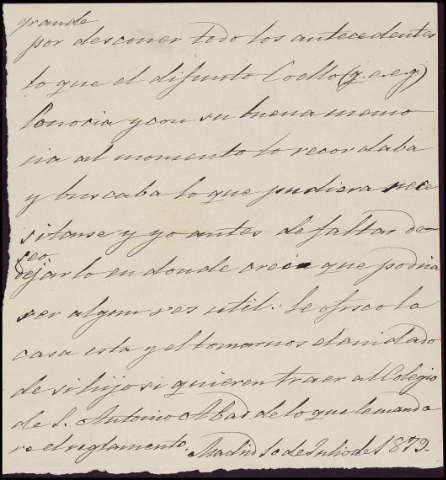 grande
por desconer todo los antecedentes
lo que el difunto Coello (q. e. e. g)
Conocia y con su buena memo
ria al momento lo recordaba
y buscaba lo que pudiera nece
sitarse y yo antes de faltar de-
seo
dejarlo en donde creia que podria
ser algun ves util. Le ofresco la
casa esta y el tomarnos el cuidado
de si hijo si quieren traer al Colegio
de S. Antonio Abad de lo que le manda
re el reglamento. Madrid 10 de Julio de 1879.